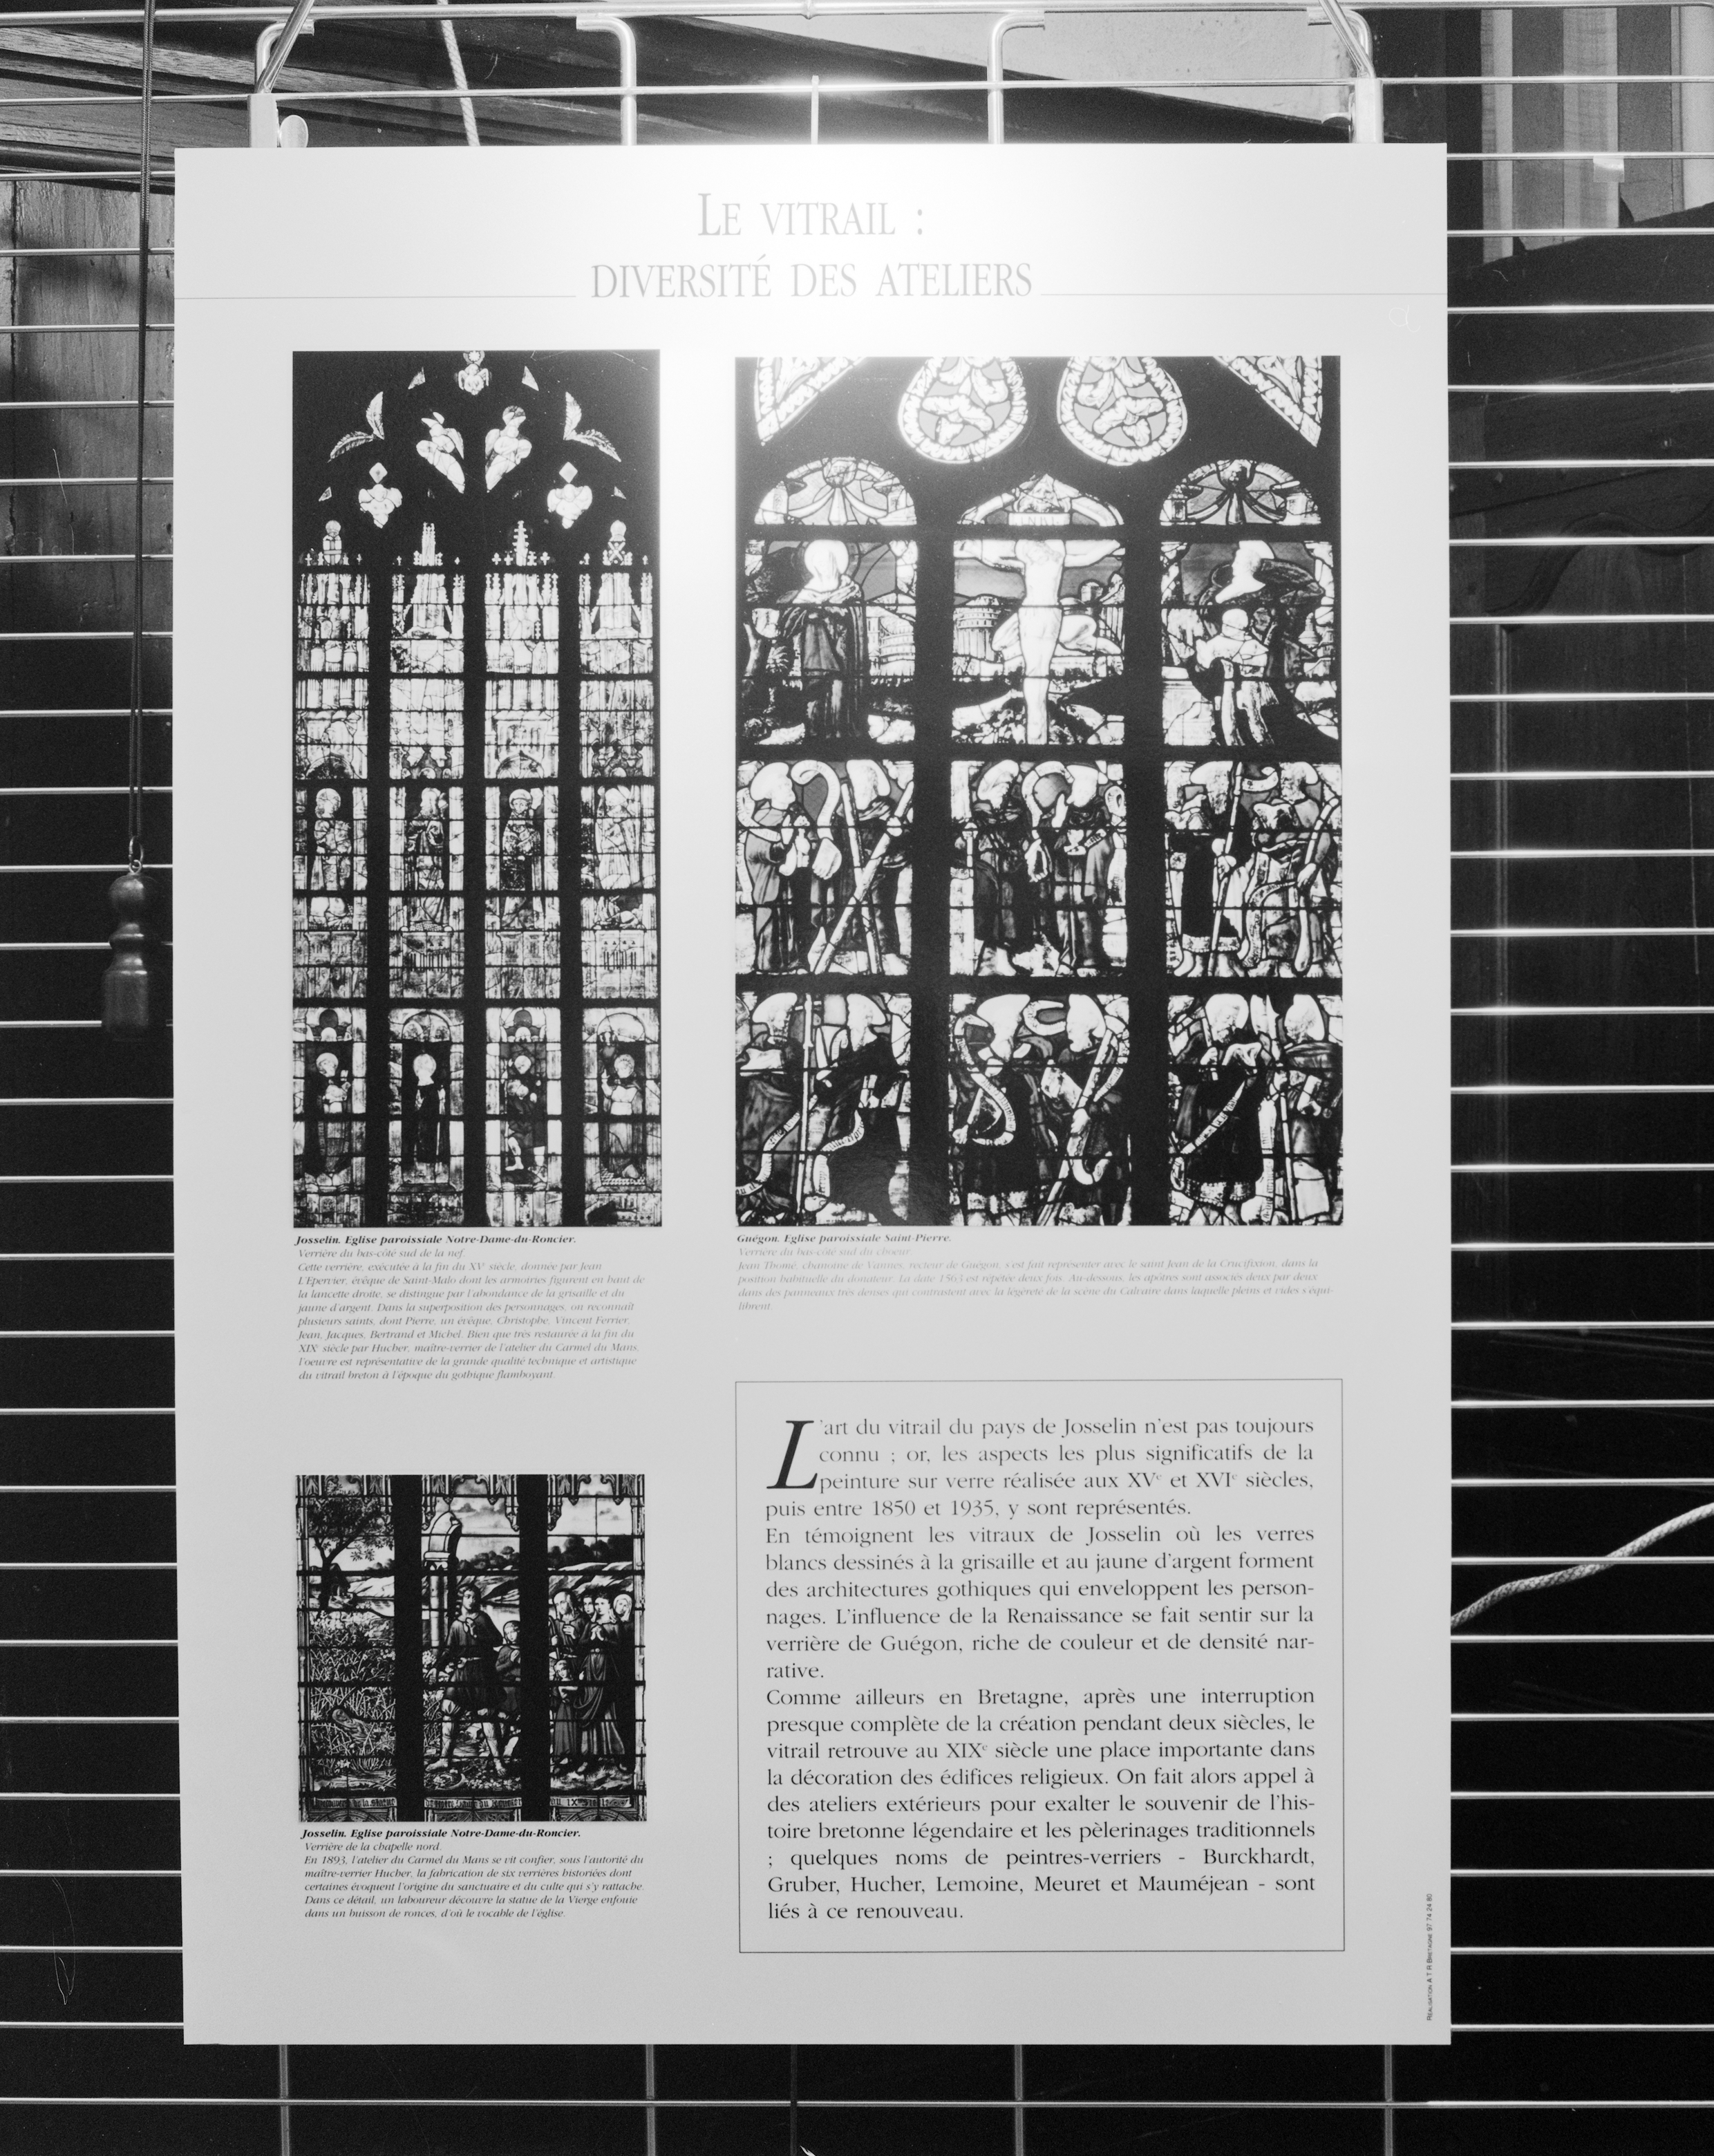 LE VITRAIL :
DIVERSITÉ DES ATELIERS
Josselin. Eglise paroissiale Notre-Dame-du-Roncier.
Verrière du bas-côté sud de la nef.
Cette verrière, exécutée à la fin du XVe siècle, donnée par Jean
L'Epervier, évêque de Saint-Malo dont les armoiries figurent en haut de
la lancette droite, se distingue par l'abondance de la grisaille et du
jaune d'argent. Dans la superposition des personnages, on reconnaît
plusieurs saints, dont Pierre, un évêque, Christophe, Vincent Ferrier,
Jean, Jacques, Bertrand et Michel. Bien que très restaurée à la fin du
XIXe siècle par Hucher, maître-verrier de l'atelier du Carmel du Mans,
l'oeuvre est représentative de la grande qualité technique et artistique
du vitrail breton à l'époque du gothique flamboyant.
Guégon. Eglise paroissiale Saint-Pierre.
Verrière du bas-côté sud du choeur.
Jean Thomé, chanoine de Vannes, recteur de Guégon, s'est fait représenter avec le saint Jean de la Crucifixion, dans la
position habituelle du donateur. La date 1563 est répétée deux fois. Au-dessous, les apôtres sont associés deux par deux
dans des panneaux très denses qui contrastent avec la légèreté de la scène du Calvaire dans laquelle pleins et vides s'équi-
librent.
L'art du vitrail du pays de Josselin n'est pas toujours
connu ; or, les aspects les plus significatifs de la
peinture sur verre réalisée aux XVe et XVIe siècles,
puis entre 1850 et 1935, y sont représentés.
En témoignent les vitraux de Josselin où les verres
blancs dessinés à la grisaille et au jaune d'argent forment
des architectures gothiques qui enveloppent les person-
nages. L'influence de la Renaissance se fait sentir sur la
verrière de Guégon, riche de couleur et de densité nar-
rative.
Comme ailleurs en Bretagne, après une interruption
presque complète de la création pendant deux siècles, le
vitrail retrouve au XIXe siècle une place importante dans
la décoration des édifices religieux. On fait alors appel à
des ateliers extérieurs pour exalter le souvenir de l'his-
toire bretonne légendaire et les pèlerinages traditionnels
; quelques noms de peintres-verriers - Burckhardt,
Gruber, Hucher, Lemoine, Meuret et Mauméjean - sont
liés à ce renouveau.
Josselin. Eglise paroissiale Notre-Dame-du-Roncier.
Verrière de la chapelle nord.
En 1893, l'atelier du Carmel du Mans se vit confier, sous l'autorité du
maître-verrier Hucher, la fabrication de six verrières historiées dont
certaines évoquent l'origine du sanctuaire et du culte qui s'y rattache.
Dans ce détail, un laboureur découvre la statue de la Vierge enfouie
dans un buisson de ronces, d'où le vocable de l'église.
RÉALISATION A.T.R BRETAGNE 97 74 24 80